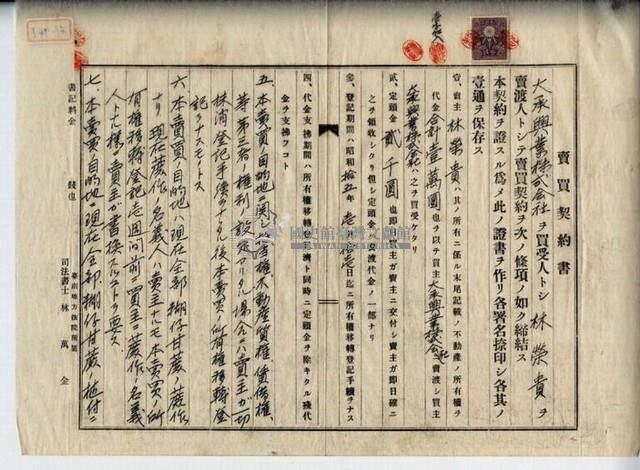 賣買契約書
大承興業株式会社ヲ買受人トシ林榮貴ヲ
賣渡人トシテ賣買契約ヲ次ノ條項ノ如ク締結ス
本契約ヲ證スル爲メ此ノ證書ヲ作リ各署名捺印シ各其ノ
壹通ヲ保存ス
壹、賣主林榮貴ハ其ノ所有ニ係ル末尾記載ノ不動產ノ所有權ヲ
代金合計壹萬圓也ヲ以テ買主大承興業株式会社ニ賣渡シ買主
大承興業株式会社ハ之ヲ買受ケタリ
貳、定頭金貳千圓也卽日買主ガ賣主ニ交付シ賣主ガ卽日確ニ
之ヲ領收シタリ但シ定頭金ハ賣渡代金ノ一部ナリ
參、登記期間ハ昭和拾五年 日迄ニ所有權移轉登記手續ヲナス
四、代金支拂期間ハ所有權移轉登記濟ト同時ニ定頭金ヲ除キタル殘代
金ヲ支拂フコト
五、本賣買ノ目的地ニ関シ 權不動産質權賃借權、
等第三者權利ノ設定アリタル場合ニハ賣主ガ一切
抹消登記手續ヲナシタル後本賣買ノ所有權移轉登
記ヲナスモノトス
六、本賣買ノ目的地ハ現在全部糊仔甘蔗ノ蔗作
ナリ現在蔗作ノ名義人ハ賣主ナルモ本賣買ノ所
有權移轉登記七週间前ニ買主ニ蔗作ノ名義
人トナル樣ニ賣主ガ書換スルコトヲ要ス
七、本賣買ノ目的地ハ現在全部糊仔甘蔗ノ植付ニ
書記料金 錢也
臺南地方法院所屬
司法書士 林萬金
國史館臺灣文獻館